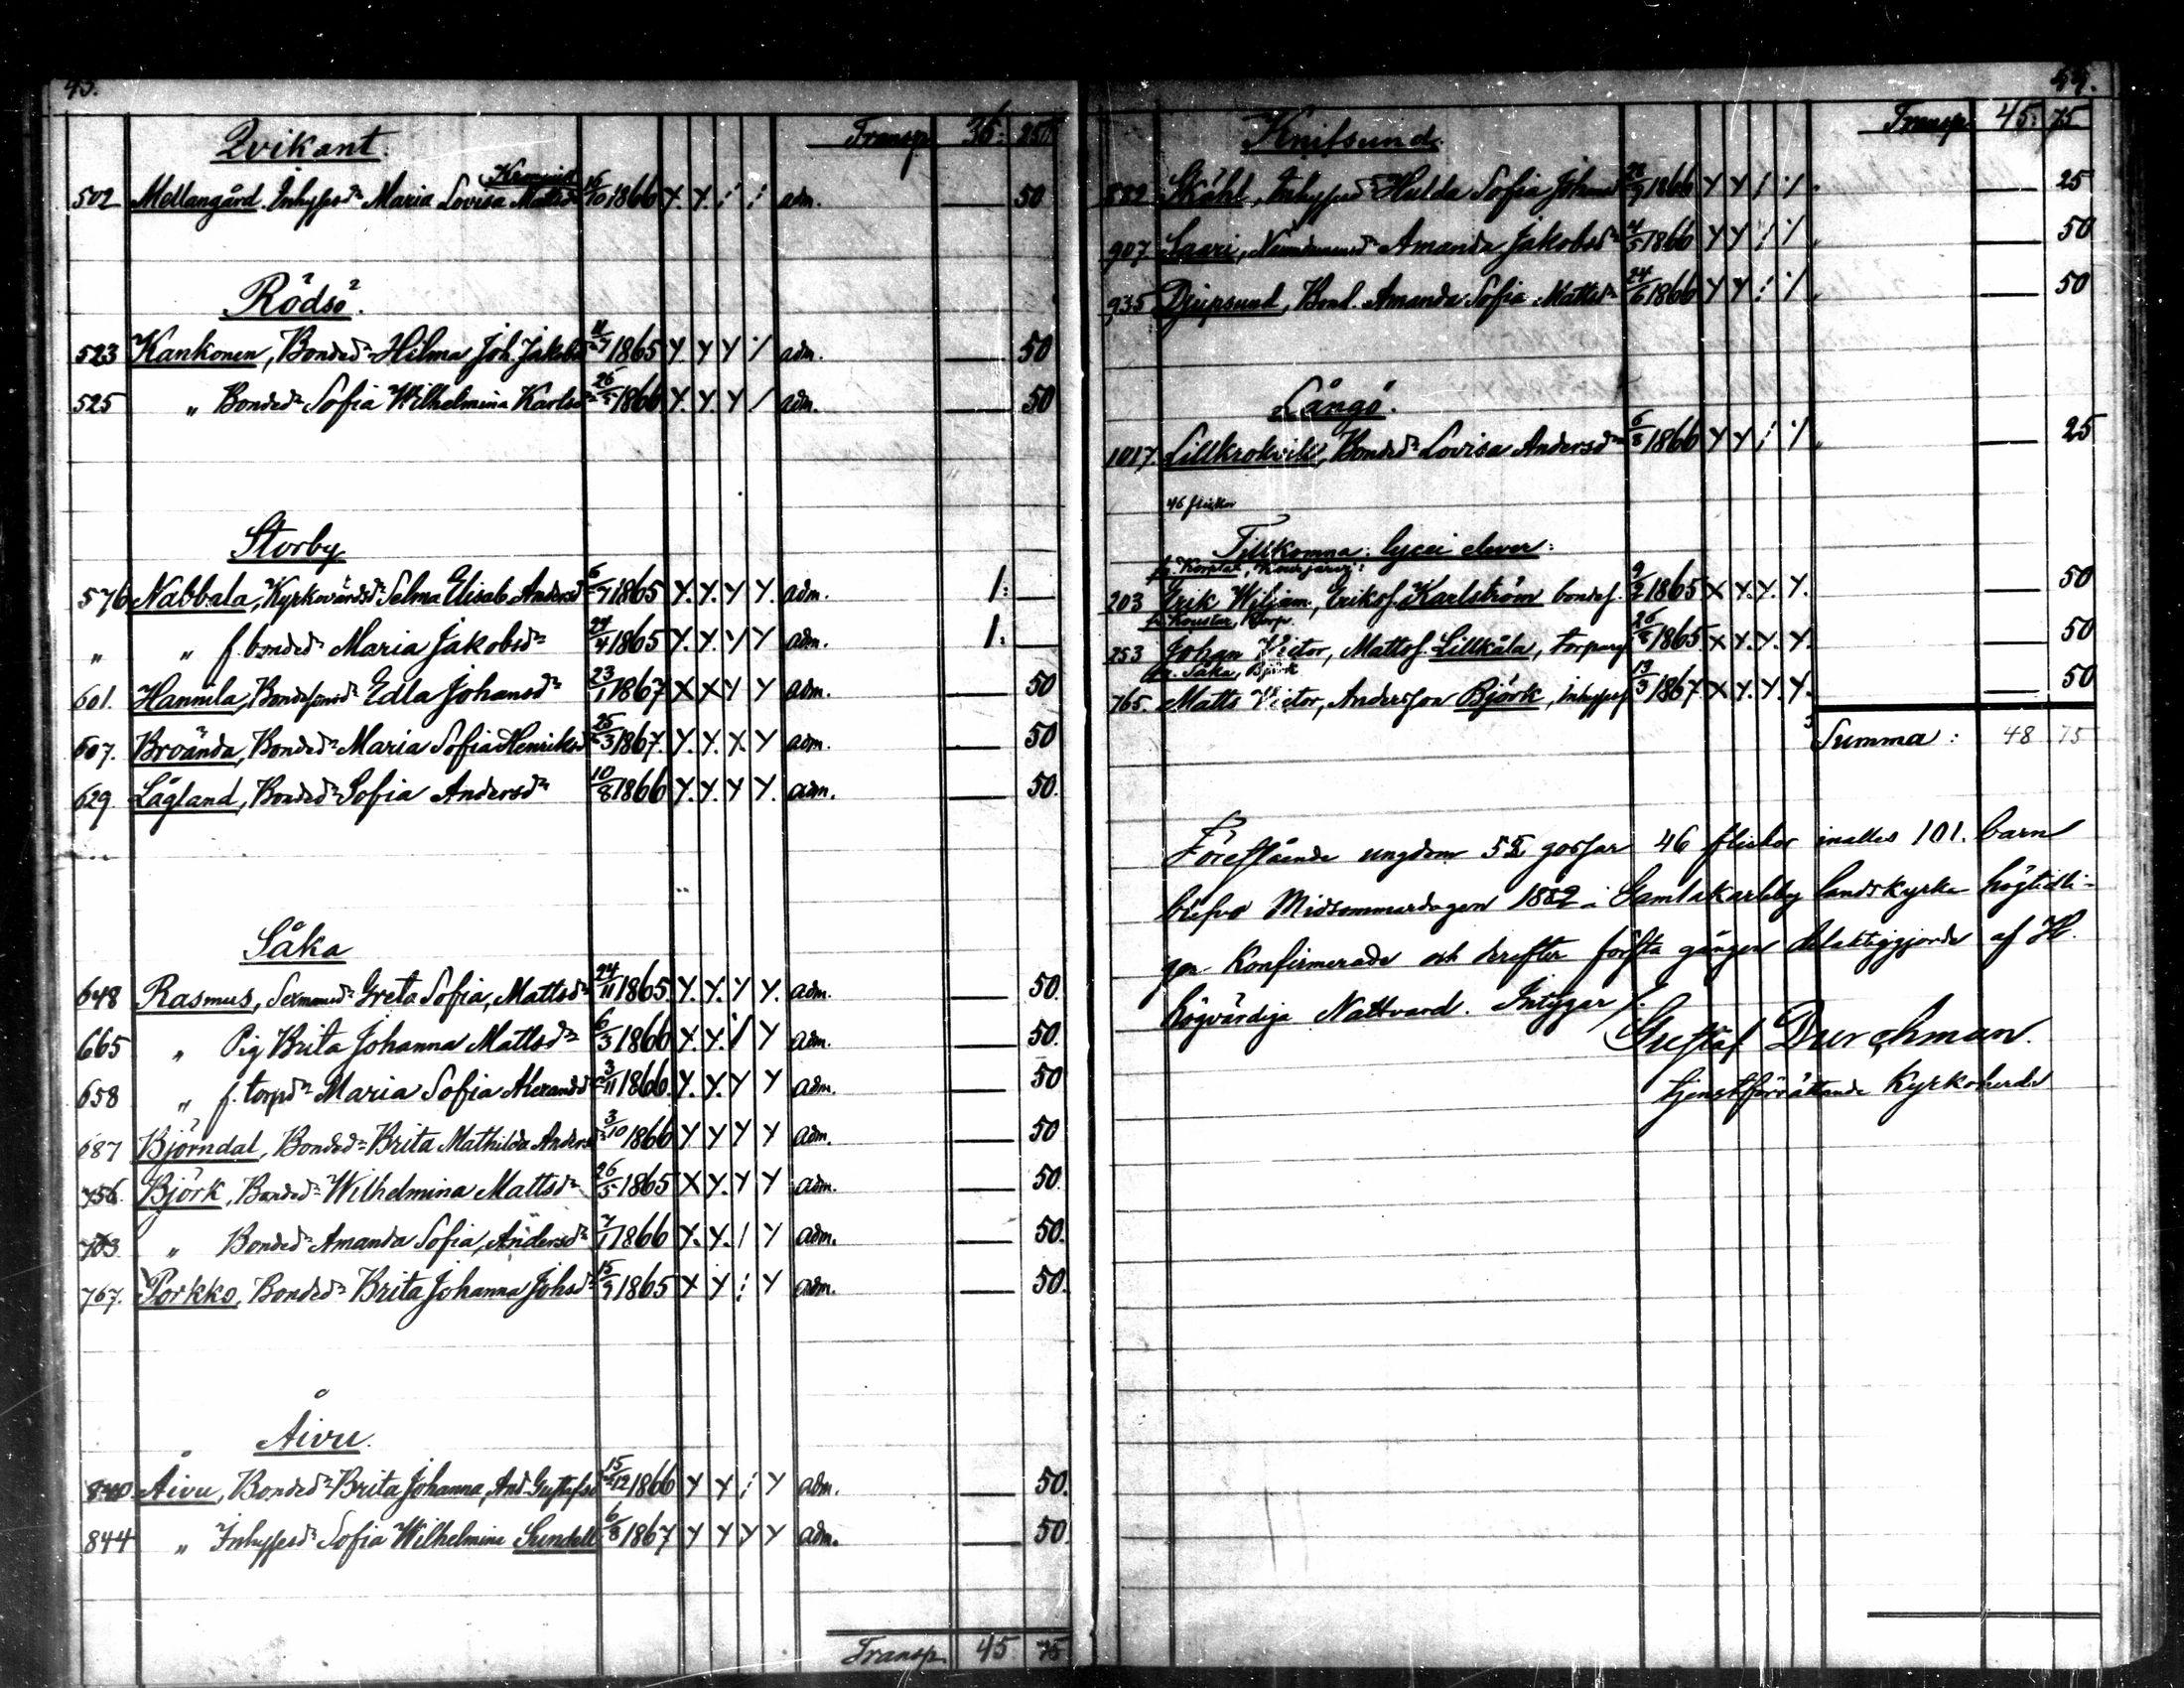 43.
Transp. 36: 25
Qvikant.
Kronqvist
502 Mellangård. Inhysesd:r Maria Lovisa Mattsd:r 16/10 1866 Y. Y. / / adm. — 50
Rödsö.
523 Kankonen, Bonded:r Hilma Joh. Jakobsd 11/7 1865 Y. Y. Y / adm. — 50
525 " Bonded:r Sofia Wilhelmina Karlsd 26/5 1866 Y. Y. Y / adm. — 50
Storby
576 Nabbala, Kyrkovärdsd:r Selma Elisab. Andersd 6/7 1865 Y. Y. Y. Y. adm. 1: —
" " f. bonded:r Maria Jakobsd:r 24/4 1865 Y. Y. Y Y adm. 1: —
601. Hannila, Bondesonsd:r Edla Johansd:r 23/1 1867 X X Y Y adm. — 50
607. Broända, Bonded:r Maria Sofia Henriksd 25/3 1867. Y. Y. X Y adm. — 50
629. Lågland, Bonded:r Sofia Andersd:r 10/8 1866 Y. Y. Y Y. adm. — 50.
Såka
648 Rasmus, Sexmansd:r Greta Sofia, Mattsd:r 24/11 1865 Y. Y. Y Y. adm. — 50.
665 " Pig. Brita Johanna Mattsd:r 6/3 1866 Y. Y. / Y adm. — 50.
658 " f. torpd:r Maria Sofia Alexandsd 3/11 1866. Y. Y. Y Y adm. — 50
687 Björndal, Bonded:r Brita Mathilda Andersd 3/10 1866 Y Y Y Y adm. — 50
756. Björk, Bonded:r Wilhelmina Mattsd:r 26/5 1865 X Y. Y Y adm. — 50.
763 " Bonded:r Amanda Sofia, Andersd:r 7/1 1866 Y. Y. / Y adm. — 50.
767. Porkko, Bonded:r Brita Johanna Johsd:r 15/9 1865 X Y / Y adm. — 50.
Åivu.
840 Åivu, Bonded:r Brita Johanna, And. Gustafsd 15/12 1866 Y Y / Y adm. — 50.
844 " Inhysesd:r Sofia Wilhelmina Sundell 6/8 1867 Y Y Y Y adm. — 50.
Transp. 45 75
44.
Transp. 45: 75
Knifsund.
882 Ståhl, Inhysesd:r Hulda Sofia Johansd 28/9 1866 Y Y / / " — 25
907. Saari, Nämdemansd:r Amanda Jakobsd:r 4/5 1866 Y Y / / " — 50
935 Djupsund, Bond. Amanda Sofia Mattsd:r 24/6 1866 Y Y / / " — 50
Långö.
1017. Lillkrokvik, Bonded:r Lovisa Andersd:r 6/8 1866 Y Y / / " — 25
46 flickor
Tillkomna: lycei elever:
fr. Korplax,
203 Erik Wiljam, Eriksf. Karlström bondes. 9/2 1865 X Y. Y. Y. — 50
253 Johan Victor, Mattsf. Lillkåla, torpares 26/8 1865. X Y. Y. Y. — 50
fr. Såka, Björk
765. Matts Victor, Andersson Björk, inhyses 13/3 1867. X Y. Y. Y. — 50
Summa: 48 75
Förestående ungdom 55 gossar 46 flickor inalles 101. barn
blefvo Midsommardagen 1882 i Gamlakarleby landskyrka högtidli-
gen Konfirmerade och derefter första gången delaktiggjorde af H.
högvärdiga Nattvard. Intygar /.
Gustaf Durchman.
tjenstförrättande Kyrkoherde